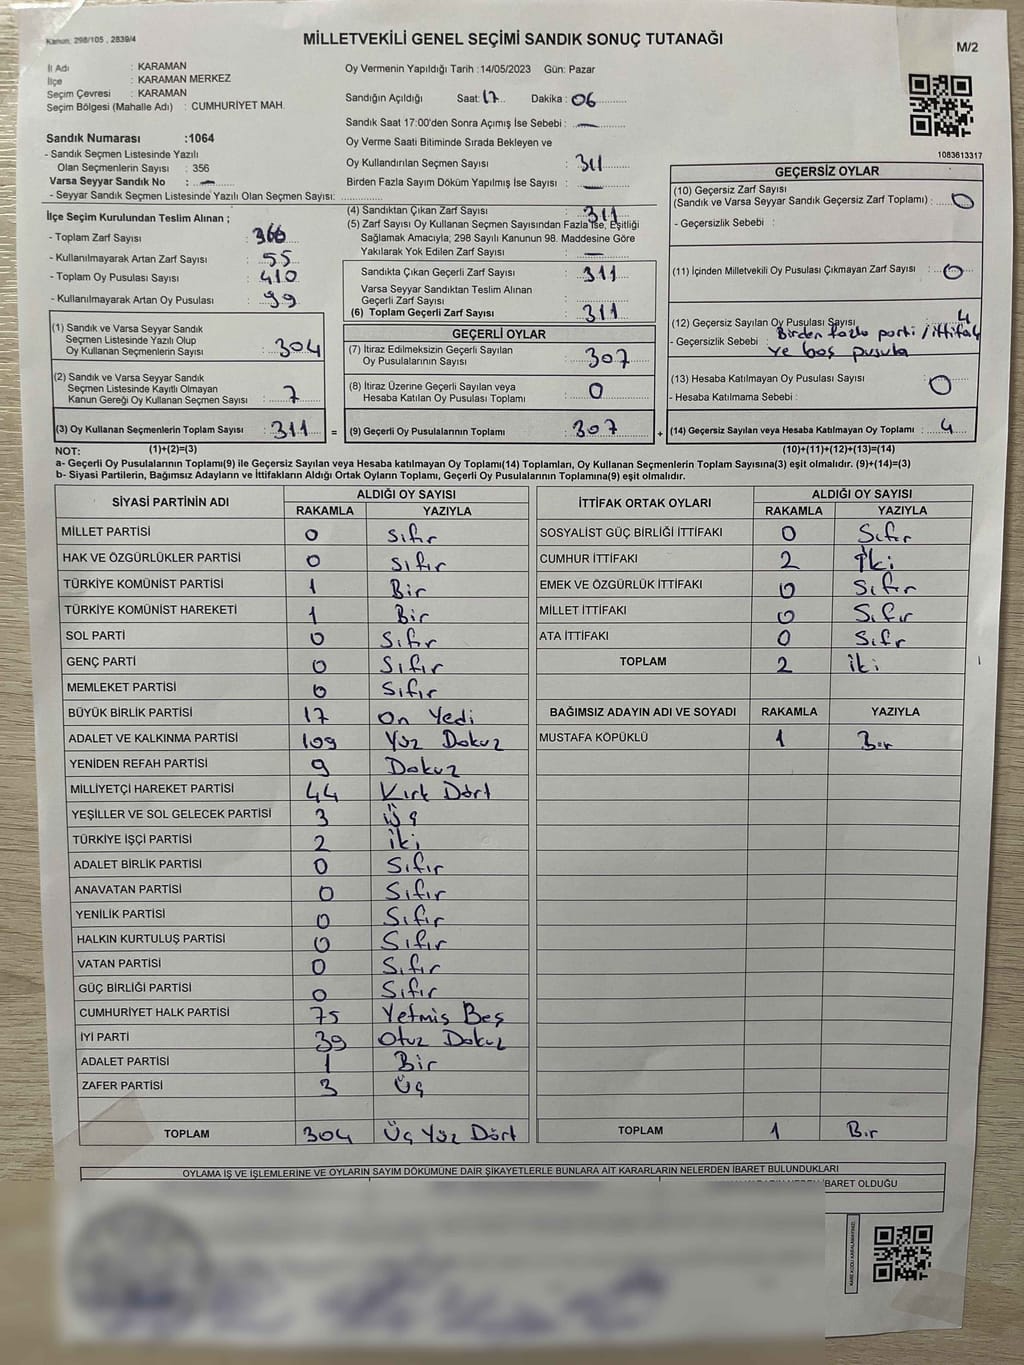 Kanun: 298/105 , 2839/4
MİLLETVEKİLİ GENEL SEÇİMİ SANDIK SONUÇ TUTANAĞI
M/2
İl Adı : KARAMAN
İlçe : KARAMAN MERKEZ
Seçim Çevresi : KARAMAN
Seçim Bölgesi (Mahalle Adı) : CUMHURİYET MAH.
Sandık Numarası :1064
- Sandık Seçmen Listesinde Yazılı
Olan Seçmenlerin Sayısı : 356
Varsa Seyyar Sandık No : —
- Seyyar Sandık Seçmen Listesinde Yazılı Olan Seçmen Sayısı:
Oy Vermenin Yapıldığı Tarih :14/05/2023 Gün: Pazar
Sandığın Açıldığı Saat: 17 Dakika : 06
Sandık Saat 17:00'den Sonra Açımış İse Sebebi : —
Oy Verme Saati Bitiminde Sırada Bekleyen ve
Oy Kullandırılan Seçmen Sayısı : 311
Birden Fazla Sayım Döküm Yapılmış İse Sayısı : —
1083613317
İlçe Seçim Kurulundan Teslim Alınan ;
- Toplam Zarf Sayısı : 366
- Kullanılmayarak Artan Zarf Sayısı : 55
- Toplam Oy Pusulası Sayısı : 410
- Kullanılmayarak Artan Oy Pusulası : 99
(1) Sandık ve Varsa Seyyar Sandık
Seçmen Listesinde Yazılı Olup
Oy Kullanan Seçmenlerin Sayısı : 304
(2) Sandık ve Varsa Seyyar Sandık
Seçmen Listesinde Kayıtlı Olmayan
Kanun Gereği Oy Kullanan Seçmen Sayısı : 7
(3) Oy Kullanan Seçmenlerin Toplam Sayısı : 311 =
(4) Sandıktan Çıkan Zarf Sayısı : 311
(5) Zarf Sayısı Oy Kullanan Seçmen Sayısından Fazla İse, Eşitliği
Sağlamak Amacıyla; 298 Sayılı Kanunun 98. Maddesine Göre
Yakılarak Yok Edilen Zarf Sayısı : —
Sandıkta Çıkan Geçerli Zarf Sayısı : 311
Varsa Seyyar Sandıktan Teslim Alınan
Geçerli Zarf Sayısı :
(6) Toplam Geçerli Zarf Sayısı : 311
GEÇERLİ OYLAR
(7) İtiraz Edilmeksizin Geçerli Sayılan
Oy Pusulalarının Sayısı : 307
(8) İtiraz Üzerine Geçerli Sayılan veya
Hesaba Katılan Oy Pusulası Toplamı : 0
(9) Geçerli Oy Pusulalarının Toplamı : 307 +
GEÇERSİZ OYLAR
(10) Geçersiz Zarf Sayısı
(Sandık ve Varsa Seyyar Sandık Geçersiz Zarf Toplamı) : 0
- Geçersizlik Sebebi :
(11) İçinden Milletvekili Oy Pusulası Çıkmayan Zarf Sayısı : 0
(12) Geçersiz Sayılan Oy Pusulası Sayısı : 4
- Geçersizlik Sebebi : Birden fazla parti / ittifak
ve boş pusula
(13) Hesaba Katılmayan Oy Pusulası Sayısı : 0
- Hesaba Katılmama Sebebi :
(14) Geçersiz Sayılan veya Hesaba Katılmayan Oy Toplamı : 4
NOT: (1)+(2)=(3) (10)+(11)+(12)+(13)=(14)
a- Geçerli Oy Pusulalarının Toplamı(9) ile Geçersiz Sayılan veya Hesaba katılmayan Oy Toplamı(14) Toplamları, Oy Kullanan Seçmenlerin Toplam Sayısına(3) eşit olmalıdır. (9)+(14)=(3)
b- Siyasi Partilerin, Bağımsız Adayların ve İttifakların Aldığı Ortak Oyların Toplamı, Geçerli Oy Pusulalarının Toplamına(9) eşit olmalıdır.
SİYASİ PARTİNİN ADI ALDIĞI OY SAYISI
RAKAMLA YAZIYLA
MİLLET PARTİSİ 0 Sıfır
HAK VE ÖZGÜRLÜKLER PARTİSİ 0 Sıfır
TÜRKİYE KOMÜNİST PARTİSİ 1 Bir
TÜRKİYE KOMÜNİST HAREKETİ 1 Bir
SOL PARTİ 0 Sıfır
GENÇ PARTİ 0 Sıfır
MEMLEKET PARTİSİ 0 Sıfır
BÜYÜK BİRLİK PARTİSİ 17 On Yedi
ADALET VE KALKINMA PARTİSİ 109 Yüz Dokuz
YENİDEN REFAH PARTİSİ 9 Dokuz
MİLLİYETÇİ HAREKET PARTİSİ 44 Kırk Dört
YEŞİLLER VE SOL GELECEK PARTİSİ 3 Üç
TÜRKİYE İŞÇİ PARTİSİ 2 İki
ADALET BİRLİK PARTİSİ 0 Sıfır
ANAVATAN PARTİSİ 0 Sıfır
YENİLİK PARTİSİ 0 Sıfır
HALKIN KURTULUŞ PARTİSİ 0 Sıfır
VATAN PARTİSİ 0 Sıfır
GÜÇ BİRLİĞİ PARTİSİ 0 Sıfır
CUMHURİYET HALK PARTİSİ 75 Yetmiş Beş
İYİ PARTİ 39 Otuz Dokuz
ADALET PARTİSİ 1 Bir
ZAFER PARTİSİ 3 Üç
TOPLAM 304 Üç Yüz Dört
İTTİFAK ORTAK OYLARI ALDIĞI OY SAYISI
RAKAMLA YAZIYLA
SOSYALİST GÜÇ BİRLİĞİ İTTİFAKI 0 Sıfır
CUMHUR İTTİFAKI 2 İki
EMEK VE ÖZGÜRLÜK İTTİFAKI 0 Sıfır
MİLLET İTTİFAKI 0 Sıfır
ATA İTTİFAKI 0 Sıfr
TOPLAM 2 İki
BAĞIMSIZ ADAYIN ADI VE SOYADI RAKAMLA YAZIYLA
MUSTAFA KÖPÜKLÜ 1 Bır
TOPLAM 1 Bır
OYLAMA İŞ VE İŞLEMLERİNE VE OYLARIN SAYIM DÖKÜMÜNE DAİR ŞİKAYETLERLE BUNLARA AİT KARARLARIN NELERDEN İBARET BULUNDUKLARI
İBARET OLDUĞU